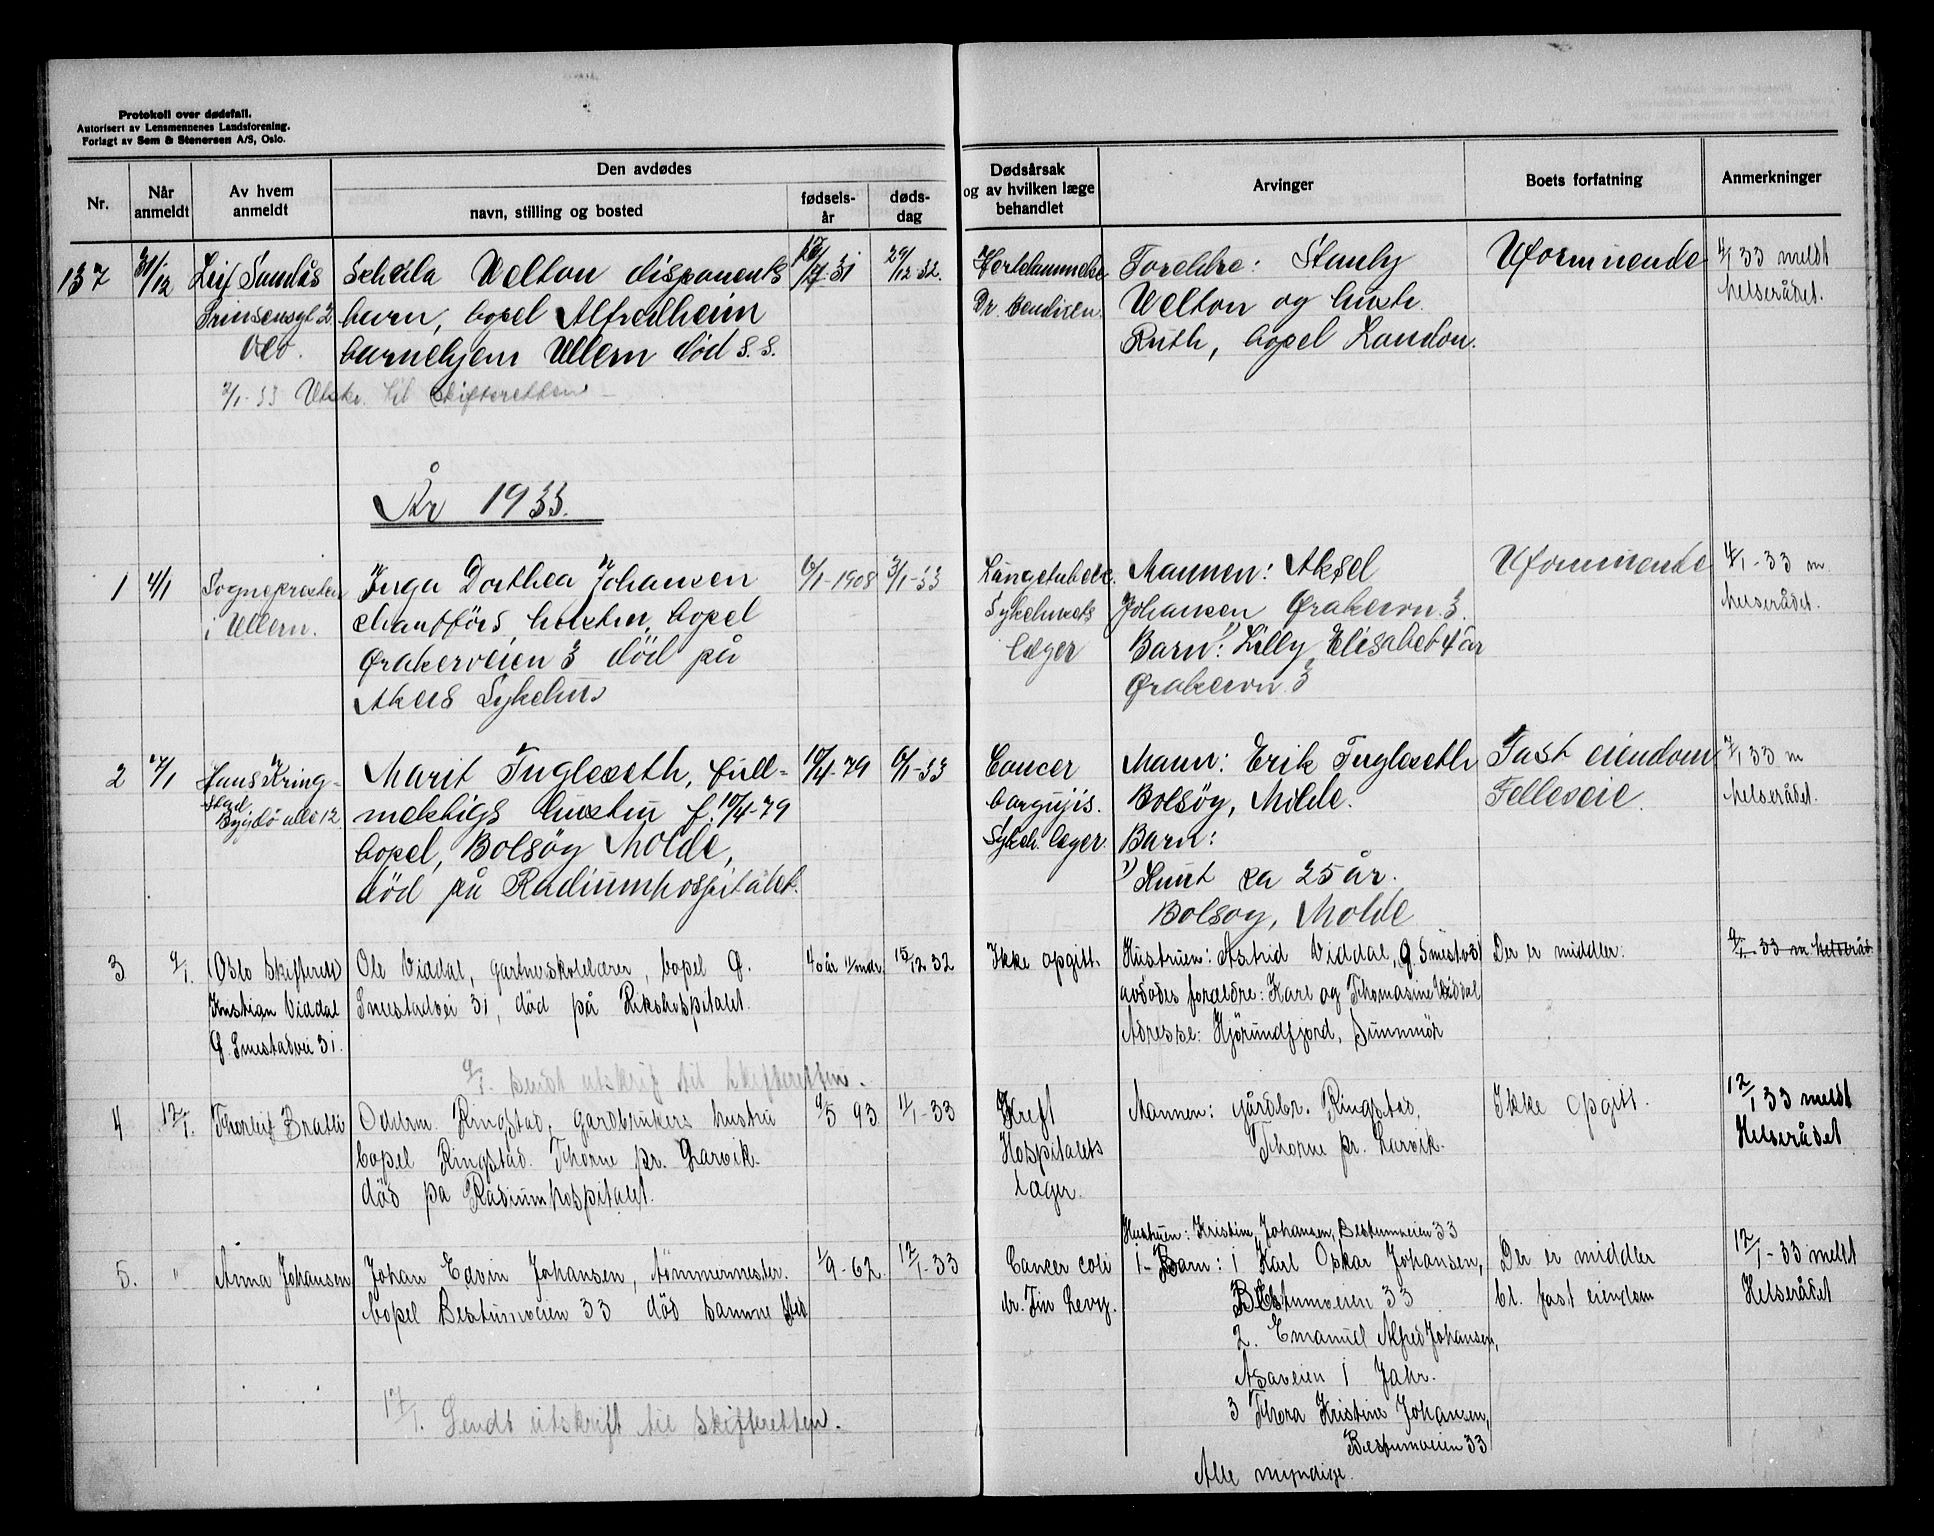 Protokoll over dødsfall.
Autorisert av Lensmennenes Landsforening.
Forlagt av Sem & Stenersen A/S, Oslo.
Nr.
Når anmeldt
Av hvem anmeldt
Den avdødes
navn, stilling og bosted
fødsels-år
døds-dag
Dødsårsak og av hvilken læge behandlet
Arvinger
Boets forfatning
Anmerkninger
137
31/12
Leif Sandås
Prinsensgt 2
Scheila Welton disponents
barn, bopel Alfredheim
barnehjem Ullern død s. s.
17-31
29/12 32.
Dr. Bendixen.
Foreldre: Stanly
Welton og hustr.
Ruth, bopel London.
Uformuende
4/1 33 meldt
helserådet.
3/1-33 Utskr. til skifteretten
År 1933.
1
4/1
Sognepresten
i Ullern.
Inga Dorthea Johansen
chaufförs hustru, bopel
Ørakerveien 3 död på
Akers Sykehus
6/1-1908
3/1-33
Lungetuberk.
Sykehusets
læger
Mannen: Aksel
Johansen Ørakervn. 3.
Barn: 1) Lilly Elisabet 4 år
Ørakervn. 3
Uformuende
4/1-33 m.
helserådet.
2
7/1
Hans Kring-
stad
Bygdö alle 12.
Marit Fugleseth, full-
mektigs hustru f. 10/4-79
bopel, Bolsöy Molde,
död på Radiumhospitalet.
10/4-79
6/1-33
Cancer
Sykeh. læger.
Mann: Erik Fugleseth
Bolsöy, Molde.
Barn:
1) Knut ca 25 år.
Bolsöy, Molde
Fast eiendom
Felleseie.
7/1 33 m
helserådet.
3
9/1.
Oslo Skifterett
Kristian Viddal
G. Smestadvei 31.
Ole Viddal, gartneskolelærer, bopel G.
Smestadvei 31, död på Rikshospitalet.
40 år 11 mndr.
15/12 32
Ikke opgitt.
Hustruen: Astrid Viddal, G. Smestv 31
avdödes foreldre: Karl og Thomasine Viddal
Adresse: Hjörundfjord, Sunnmör
Der er midler.
9/1-33 m helseråd.
9/1. sendt utskrif til skifteretten.
4
12/1.
Thorleif Bratli
Oddrm. Ringstad, gardbrukers hustru
bopel Ringstad. Thorne pr. Larvik.
död på Radiumhospitalet.
9/5 93
11/1-33
Kreft
Hospitalets
læger.
Mannen: gårdbr. Ringstad,
Thorne pr. Larvik.
Ikke opgitt.
12/1 33 meldt
Helserådet
5.
"
Anna Johansen
Johan Edvin Johansen, tömmermester.
bopel Bestumveien 33 död samme sted
1/9-62
12/1-33
Cancer coli
Hustruen: Kristine Johansen, Bestumveien 33
1- Barn: 1 Karl Oskar Johansen,
Bestumveien 33
2. Emanuel Alfred Johansen,
Asaveien 1 Jahr.
3 Thora Kristine Johansen,
Bestumveien 33
Alle myndige.
Der er middler
bl. fast eiendom
12/1-33 meldt
Helserådet
17/1. Sendt utskrift til skifteretten.